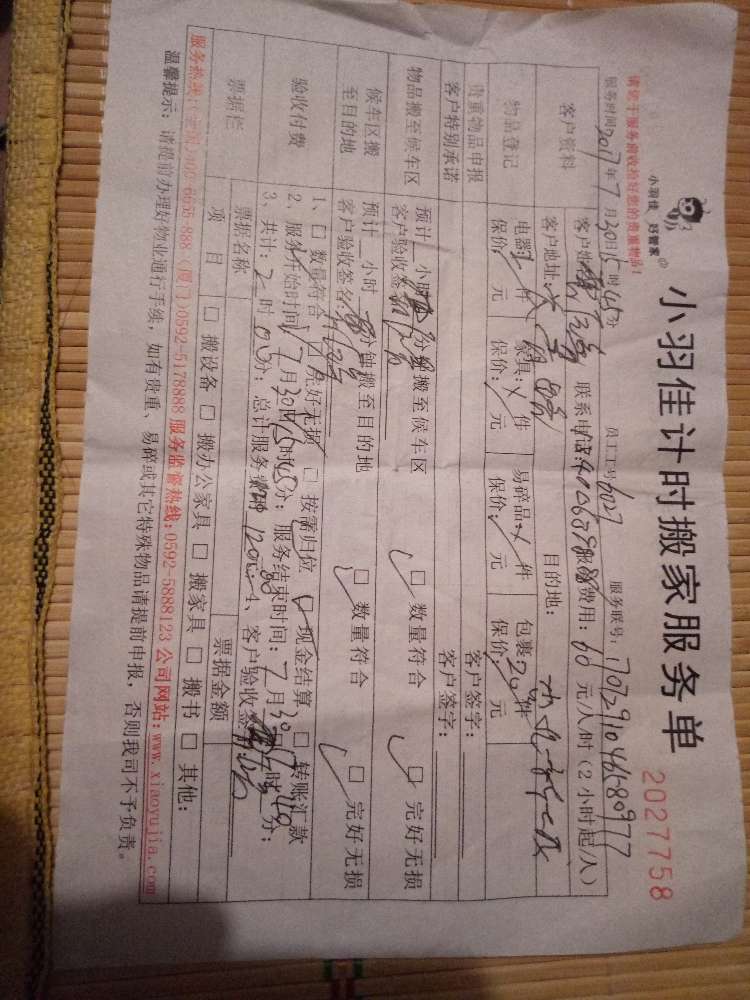 小羽佳 好管家
小羽佳计时搬家服务单
2027758
请您于服务前收拾好您的贵重物品!
服务时间: 2017年7月30日15时45分 员工工号: 6027 服务联号: 1707291046580977
客户资料 客户姓名: 联系电话: 服务费用: 60元/人/时(2小时起/人)
客户地址: 目的地:
物品登记 电器: 件 家具: 件 易碎品: 件 包裹: 20件
保价: 元 保价: 元 保价: 元 保价: 元
贵重物品申报 客户签字:
客户特别承诺 客户签字:
物品搬至候车区 预计 小时 分钟搬至候车区 □数量符合 □完好无损
客户验收签名
候车区搬至目的地 预计 小时 分钟搬至目的地 □数量符合 □完好无损
客户验收签名
验收付费 1、□数量符合 □完好无损 □按需归位 □现金结算 □转账汇款
2、服务开始时间: 7月30日15时45分; 服务结束时间: 7月30日 时 分;
3、共计: 2时 分; 总计服务费用 120元; 4、客户验收签名
票据栏 票据名称 票据金额
项目 □搬设备 □搬办公家具 □搬家具 □搬书 □其他:
服务热线: (厦门)0592-5178888 服务监督热线: 0592-5888123 公司网站: www.xiaoyujia.com
温馨提示: 请提前办理好物业通行手续, 如有贵重、易碎或其它特殊物品请提前申报, 否则我司不予负责。